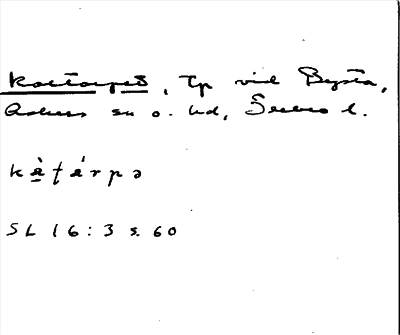 Kattorpet, Tp vid Bysta,
Askers sn o. hd, Örebro l.
kàṭárpə
SL 16:3 s. 60